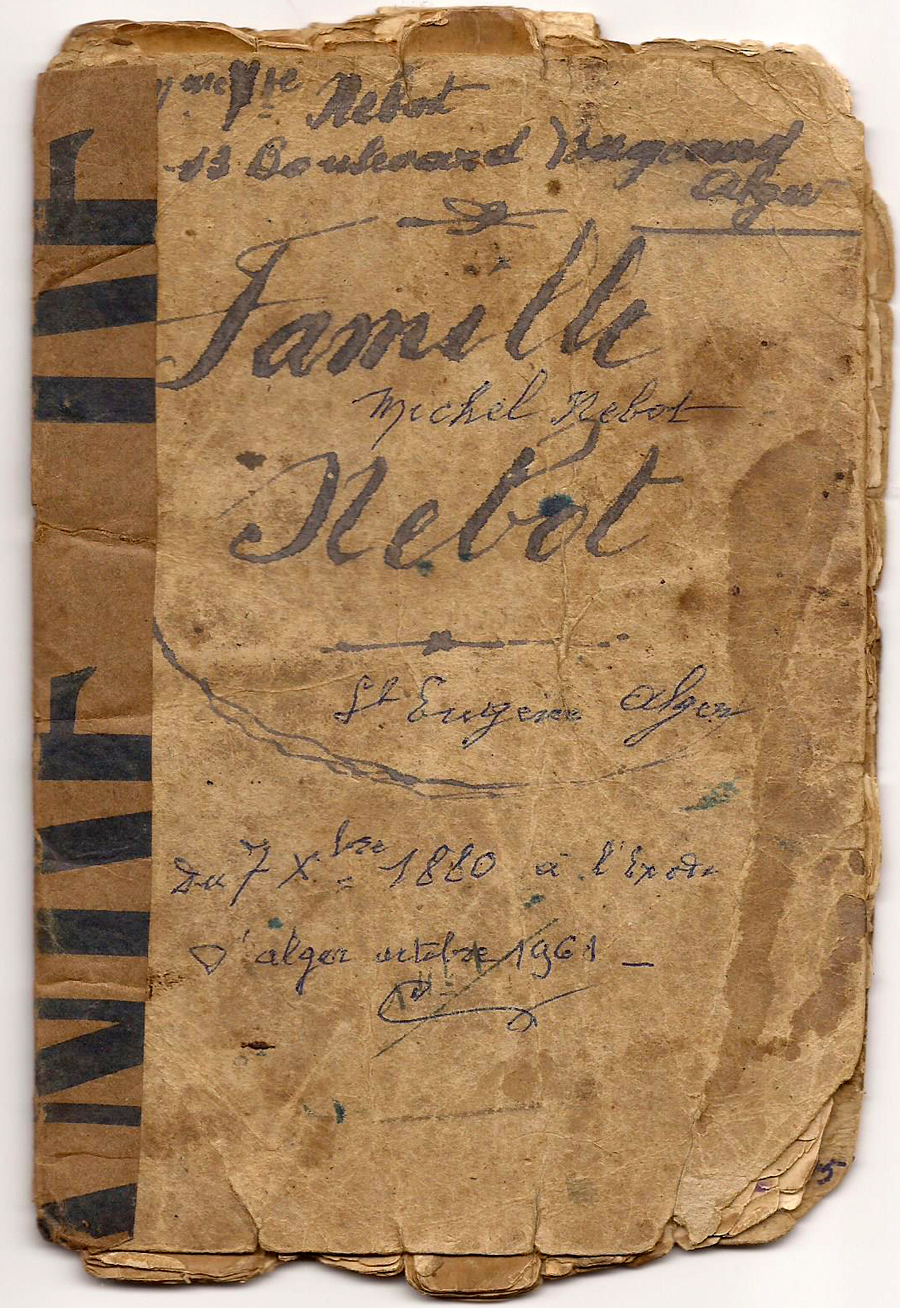 Nebot
13 Boulevard Bugeaud
Alger
Famille
Michel Nebot
Nebot
St Eugène Alger
Du 7 Xbre 1880 a l'Exode
D'alger octobre 1961
5